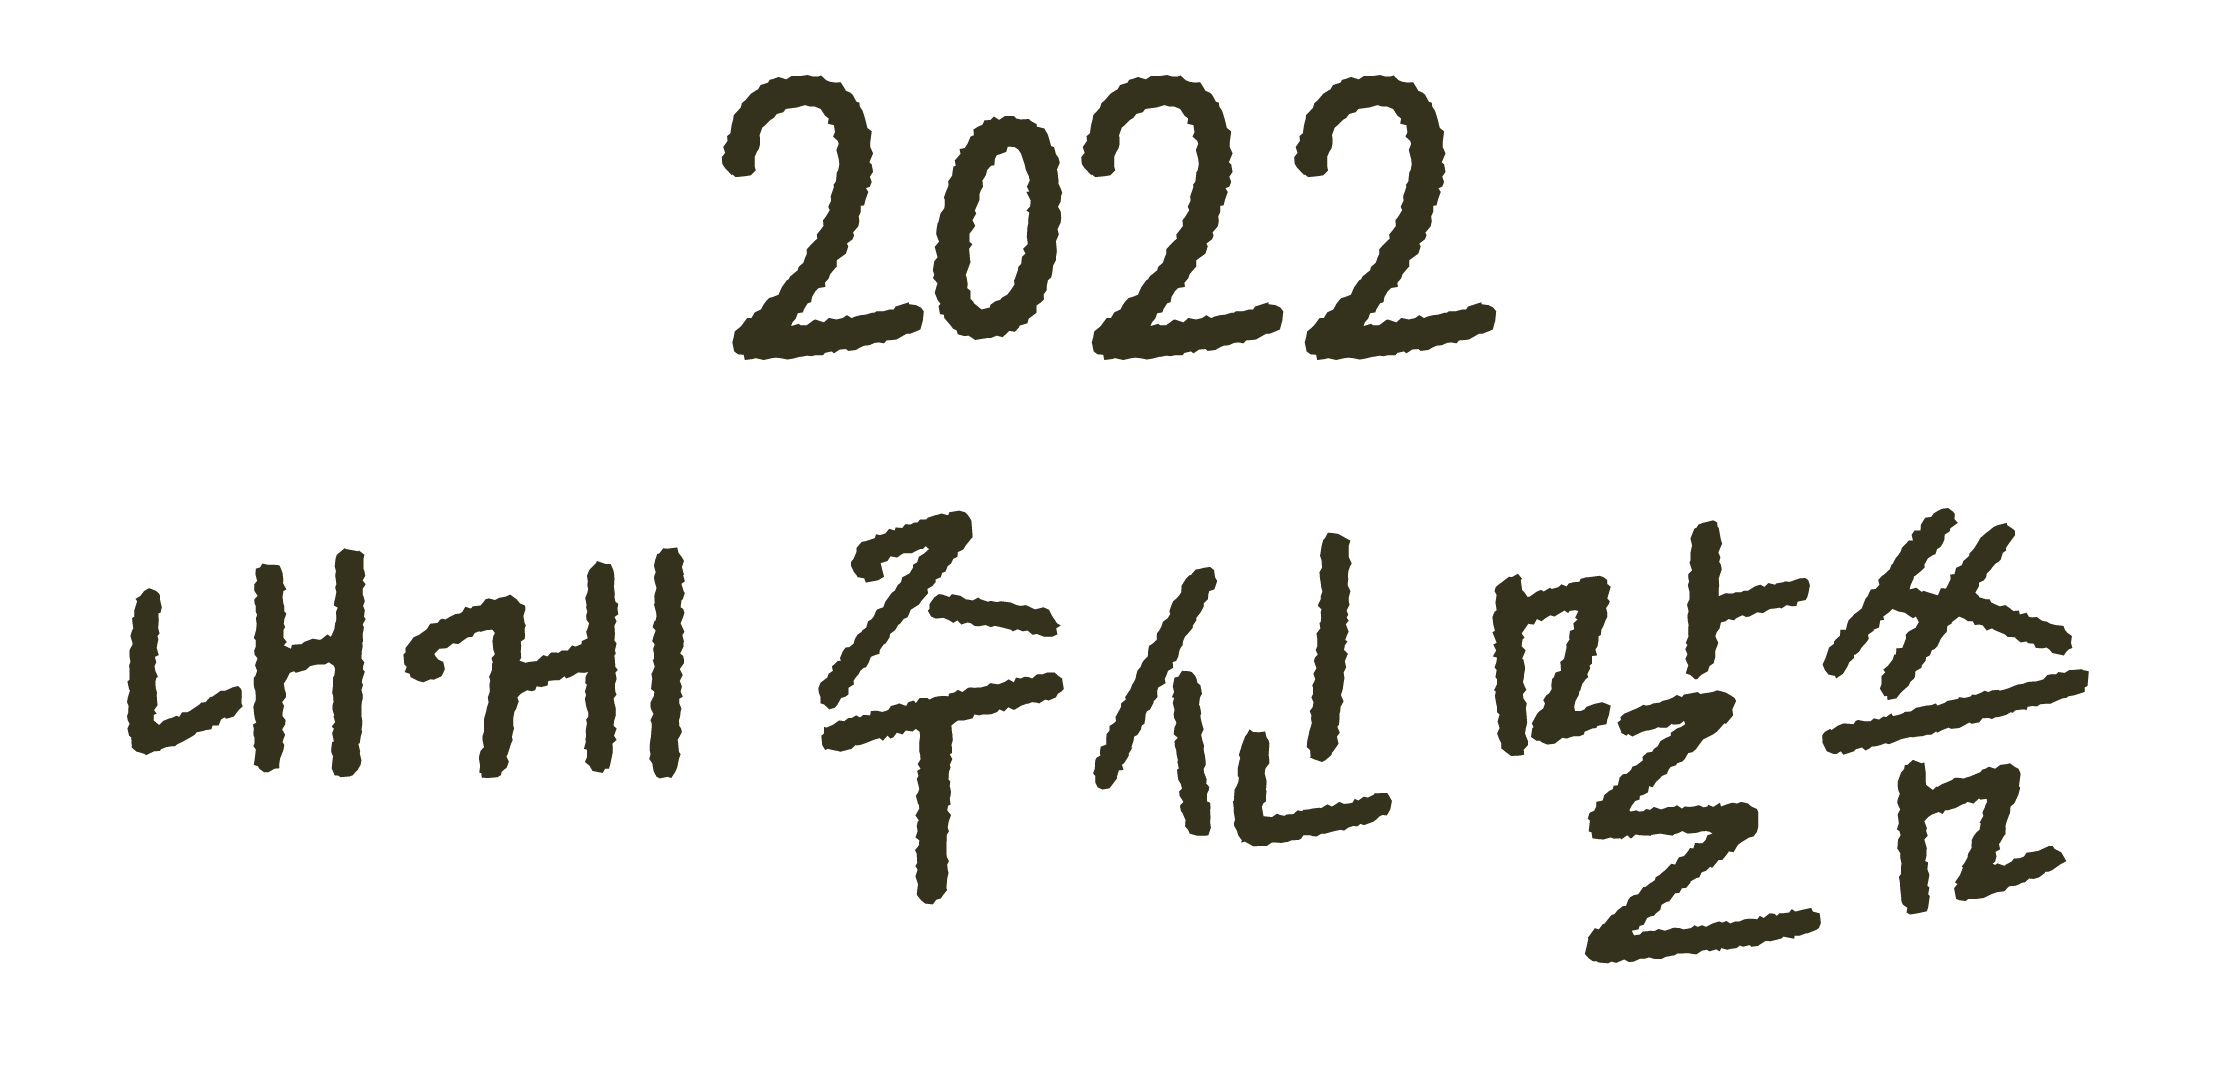 2022
내게 주신 말씀